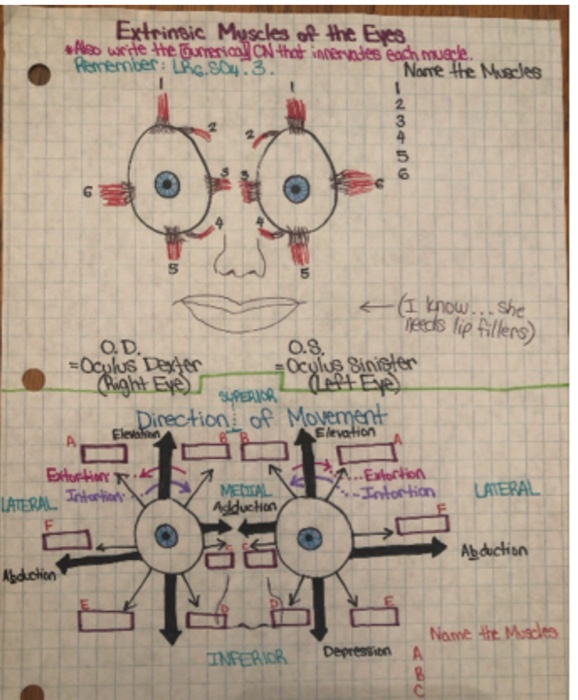 Extrinsic Muscles of the Eyes
*Also write the [numerical] CN that innervates each muscle.
Remember: LR6.SO4.3.
Name the Muscles
1
2
3
4
5
6
1
1
2
2
3
3
6
6
4
4
5
5
(I know... she
needs lip fillers)
O.D.
=Oculus Dexter
(Right Eye)
O.S.
=Oculus Sinister
(Left Eye)
SUPERIOR
Direction of Movement
Elevation
Elevation
A
B
B
A
Extortion
Extortion
Intortion
Intortion
LATERAL
MEDIAL
LATERAL
Adduction
F
F
Abduction
Abduction
C
C
E
D
D
E
INFERIOR
Depression
Name the Muscles
A
B
C